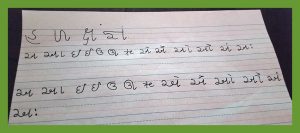 હ ળ ક્ષ જ્ઞ
અ આ ઇ ઈ ઉ ઊ ઋ એ ઐ ઓ ઔ અં અઃ
અ આ ઇ ઈ ઉ ઊ ઋ એ ઐ ઓ ઔ અં
અઃ